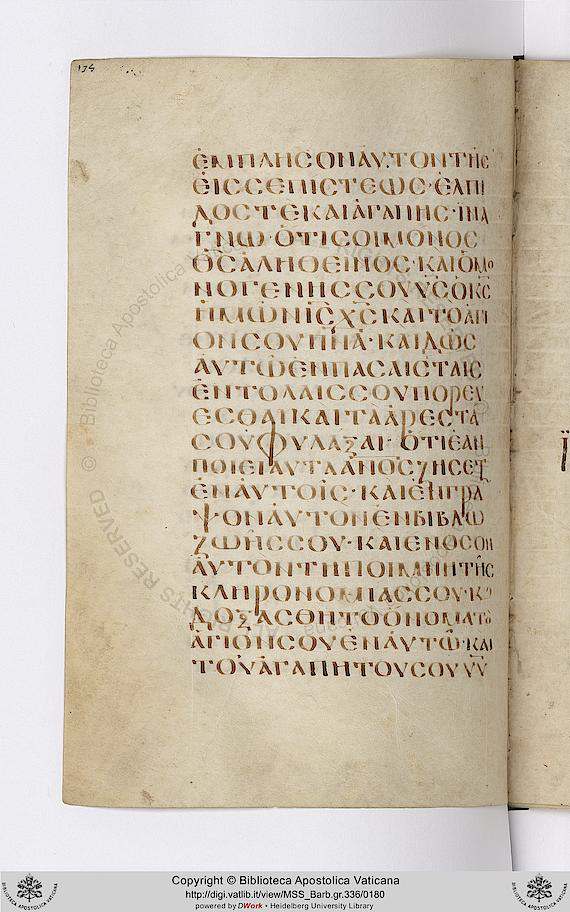 ἔμπλησοναὐτοντῆς
ἐισσεπιστεωσ· ἐλπι
δοστεκαιἀγαπης· ἱνα
γνῶ· ὁτισοιμονος
θ̅ς̅ἀληθεινος· καιὁμο
νογενηςσουυ̅ς̅ὁκ̅ς̅
ἡμωνι̅ς̅χ̅ς̅καιτοἁγι
ονσουπ̅ν̅α̅· καιδως
ἀυτῶἐνπασαιςταις
ἐντολαιςσουπορευ
εσθαικαιταἀρεστα
σουφυλαξαι· ὁτιἐαν
ποιειἀυταἀ̅ν̅ο̅ς̅ζησετ
ἐναυτοις· καιἐνγρα
ψοναὐτονἐνβιβλω
ζωηςσου· καιἑνωσον
ἀυτοντηποιμνητης
κληρονομιαςσου·
δοξασθητοονοματο
ἁγιονσουἐναὐτῶ· και
τουἀγαπητουσουυ̅υ̅
Copyright © Biblioteca Apostolica Vaticana
http://digi.vatlib.it/view/MSS_Barb.gr.336/0180
powered by DWork • Heidelberg University Library